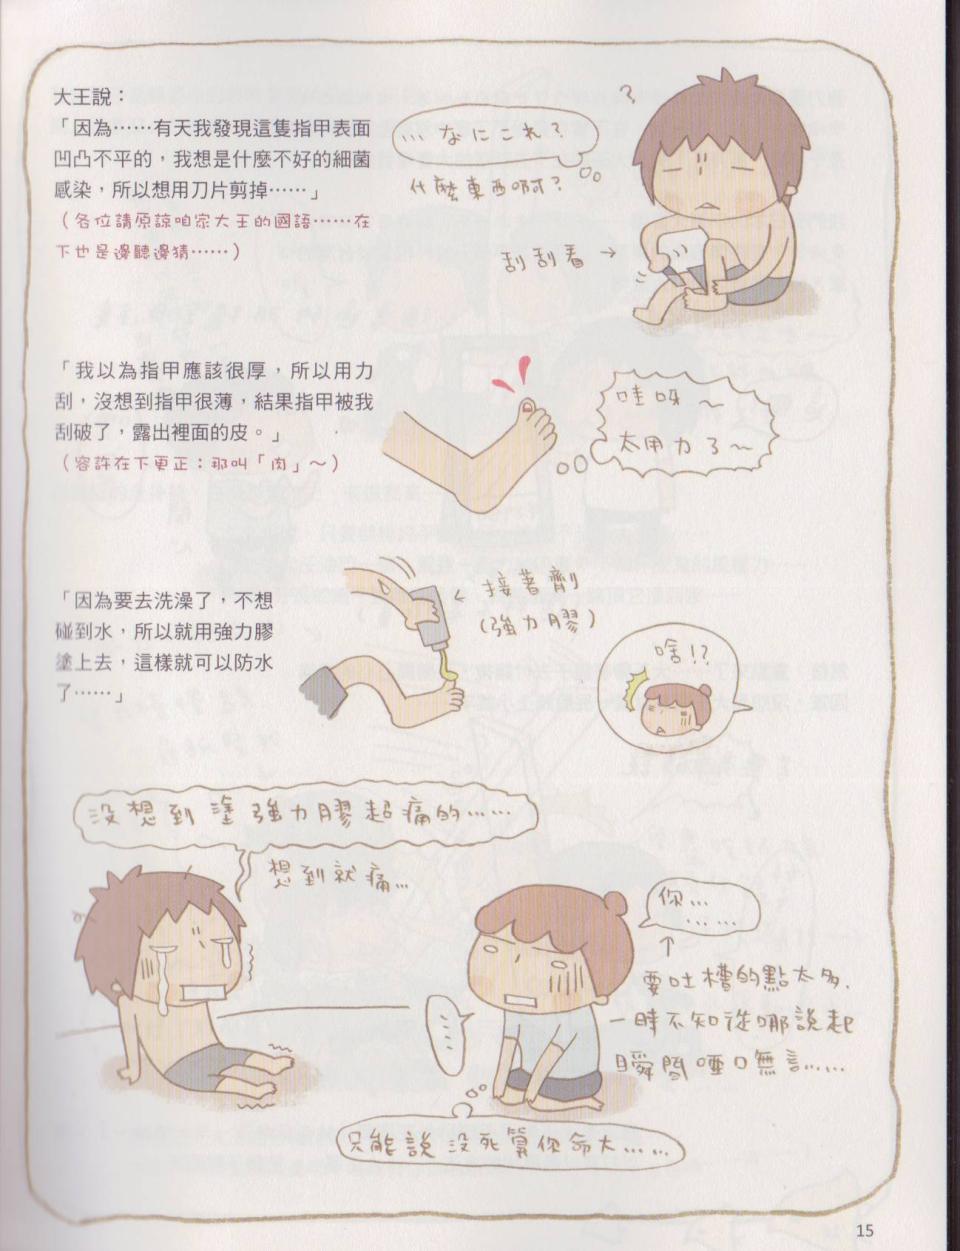 大王說：
「因為……有天我發現這隻指甲表面
凹凸不平的，我想是什麼不好的細菌
感染，所以想用刀片剪掉……」
（各位請原諒咱家大王的國語……在
下也是邊聽邊猜……）
?
…なにこれ？
什麼東西啊？
刮刮看→
「我以為指甲應該很厚，所以用力
刮，沒想到指甲很薄，結果指甲被我
刮破了，露出裡面的皮。」
（容許在下更正：那叫「肉」～）
哇呀～
太用力了～
「因為要去洗澡了，不想
碰到水，所以就用強力膠
塗上去，這樣就可以防水
了……」
接著劑
（強力膠）
啥!?
沒想到塗強力膠超痛的……
想到就痛…
你…
……
要吐槽的點太多，
一時不知從哪說起
瞬間啞口無言……
只能說沒死算你命大……
15